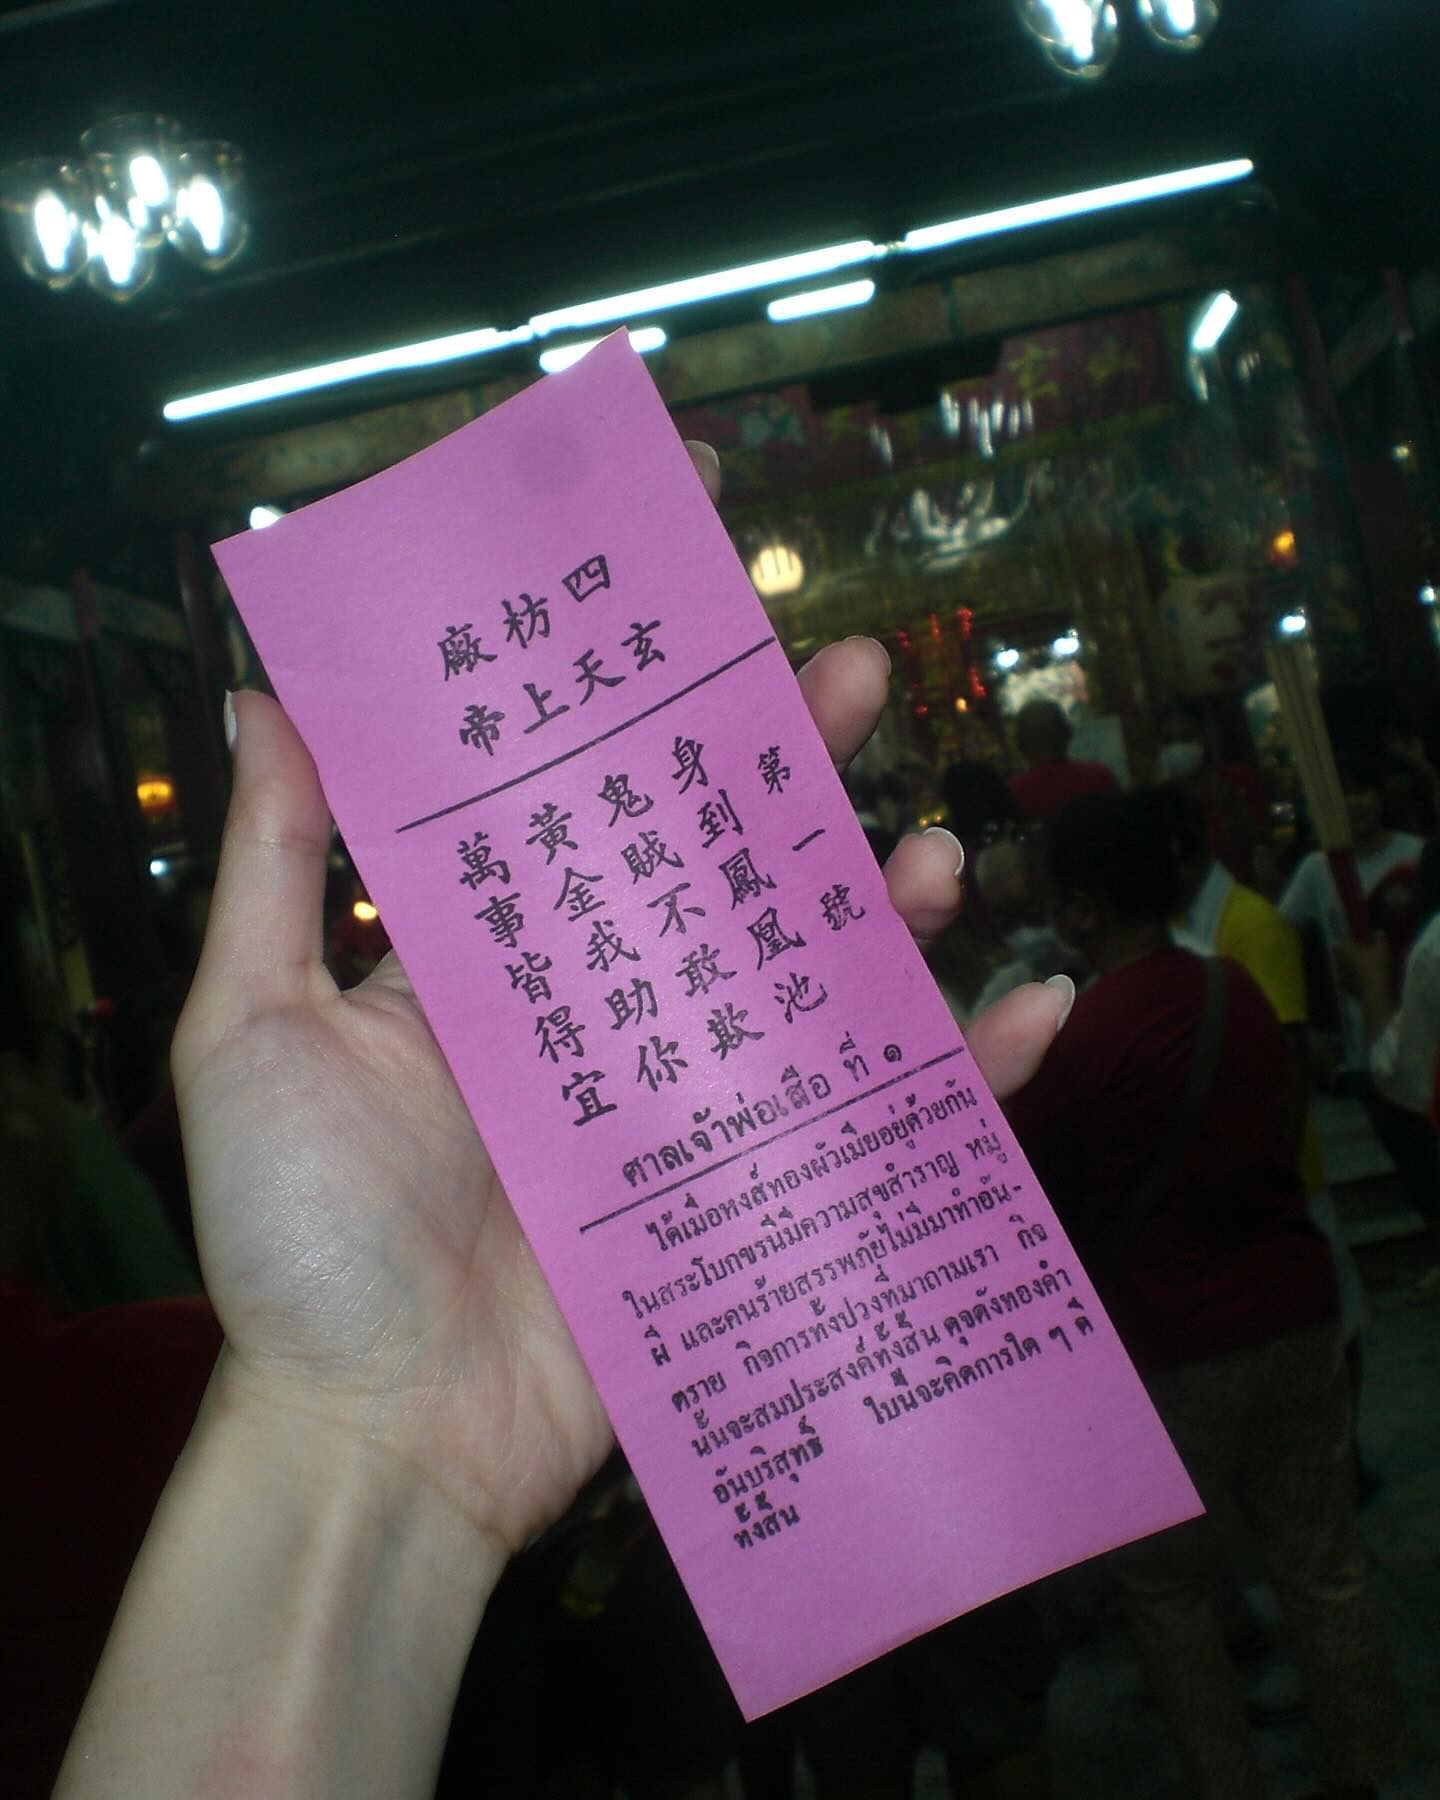 四枋廠
玄天上帝
第一號
身到鳳凰池
鬼賊不敢欺
黃金我助你
萬事皆得宜
ศาลเจ้าพ่อเสือ ที่ ๑
ได้เมื่อหงส์ทองผัวเมียอยู่ด้วยกัน
ในสระโบกขรนีมีความสุขสำราญ หมู่
ผี และคนร้ายสรรพภัยไม่มีมาทำอัน-
ตราย กิจการทั้งปวงที่มาถามเรา กิจ
นั้นจะสมประสงค์ทั้งสิ้น ดุจดังทองคำ
อันบริสุทธิ์ ใบนี้จะคิดการใด ๆ ดี
ทั้งสิ้น